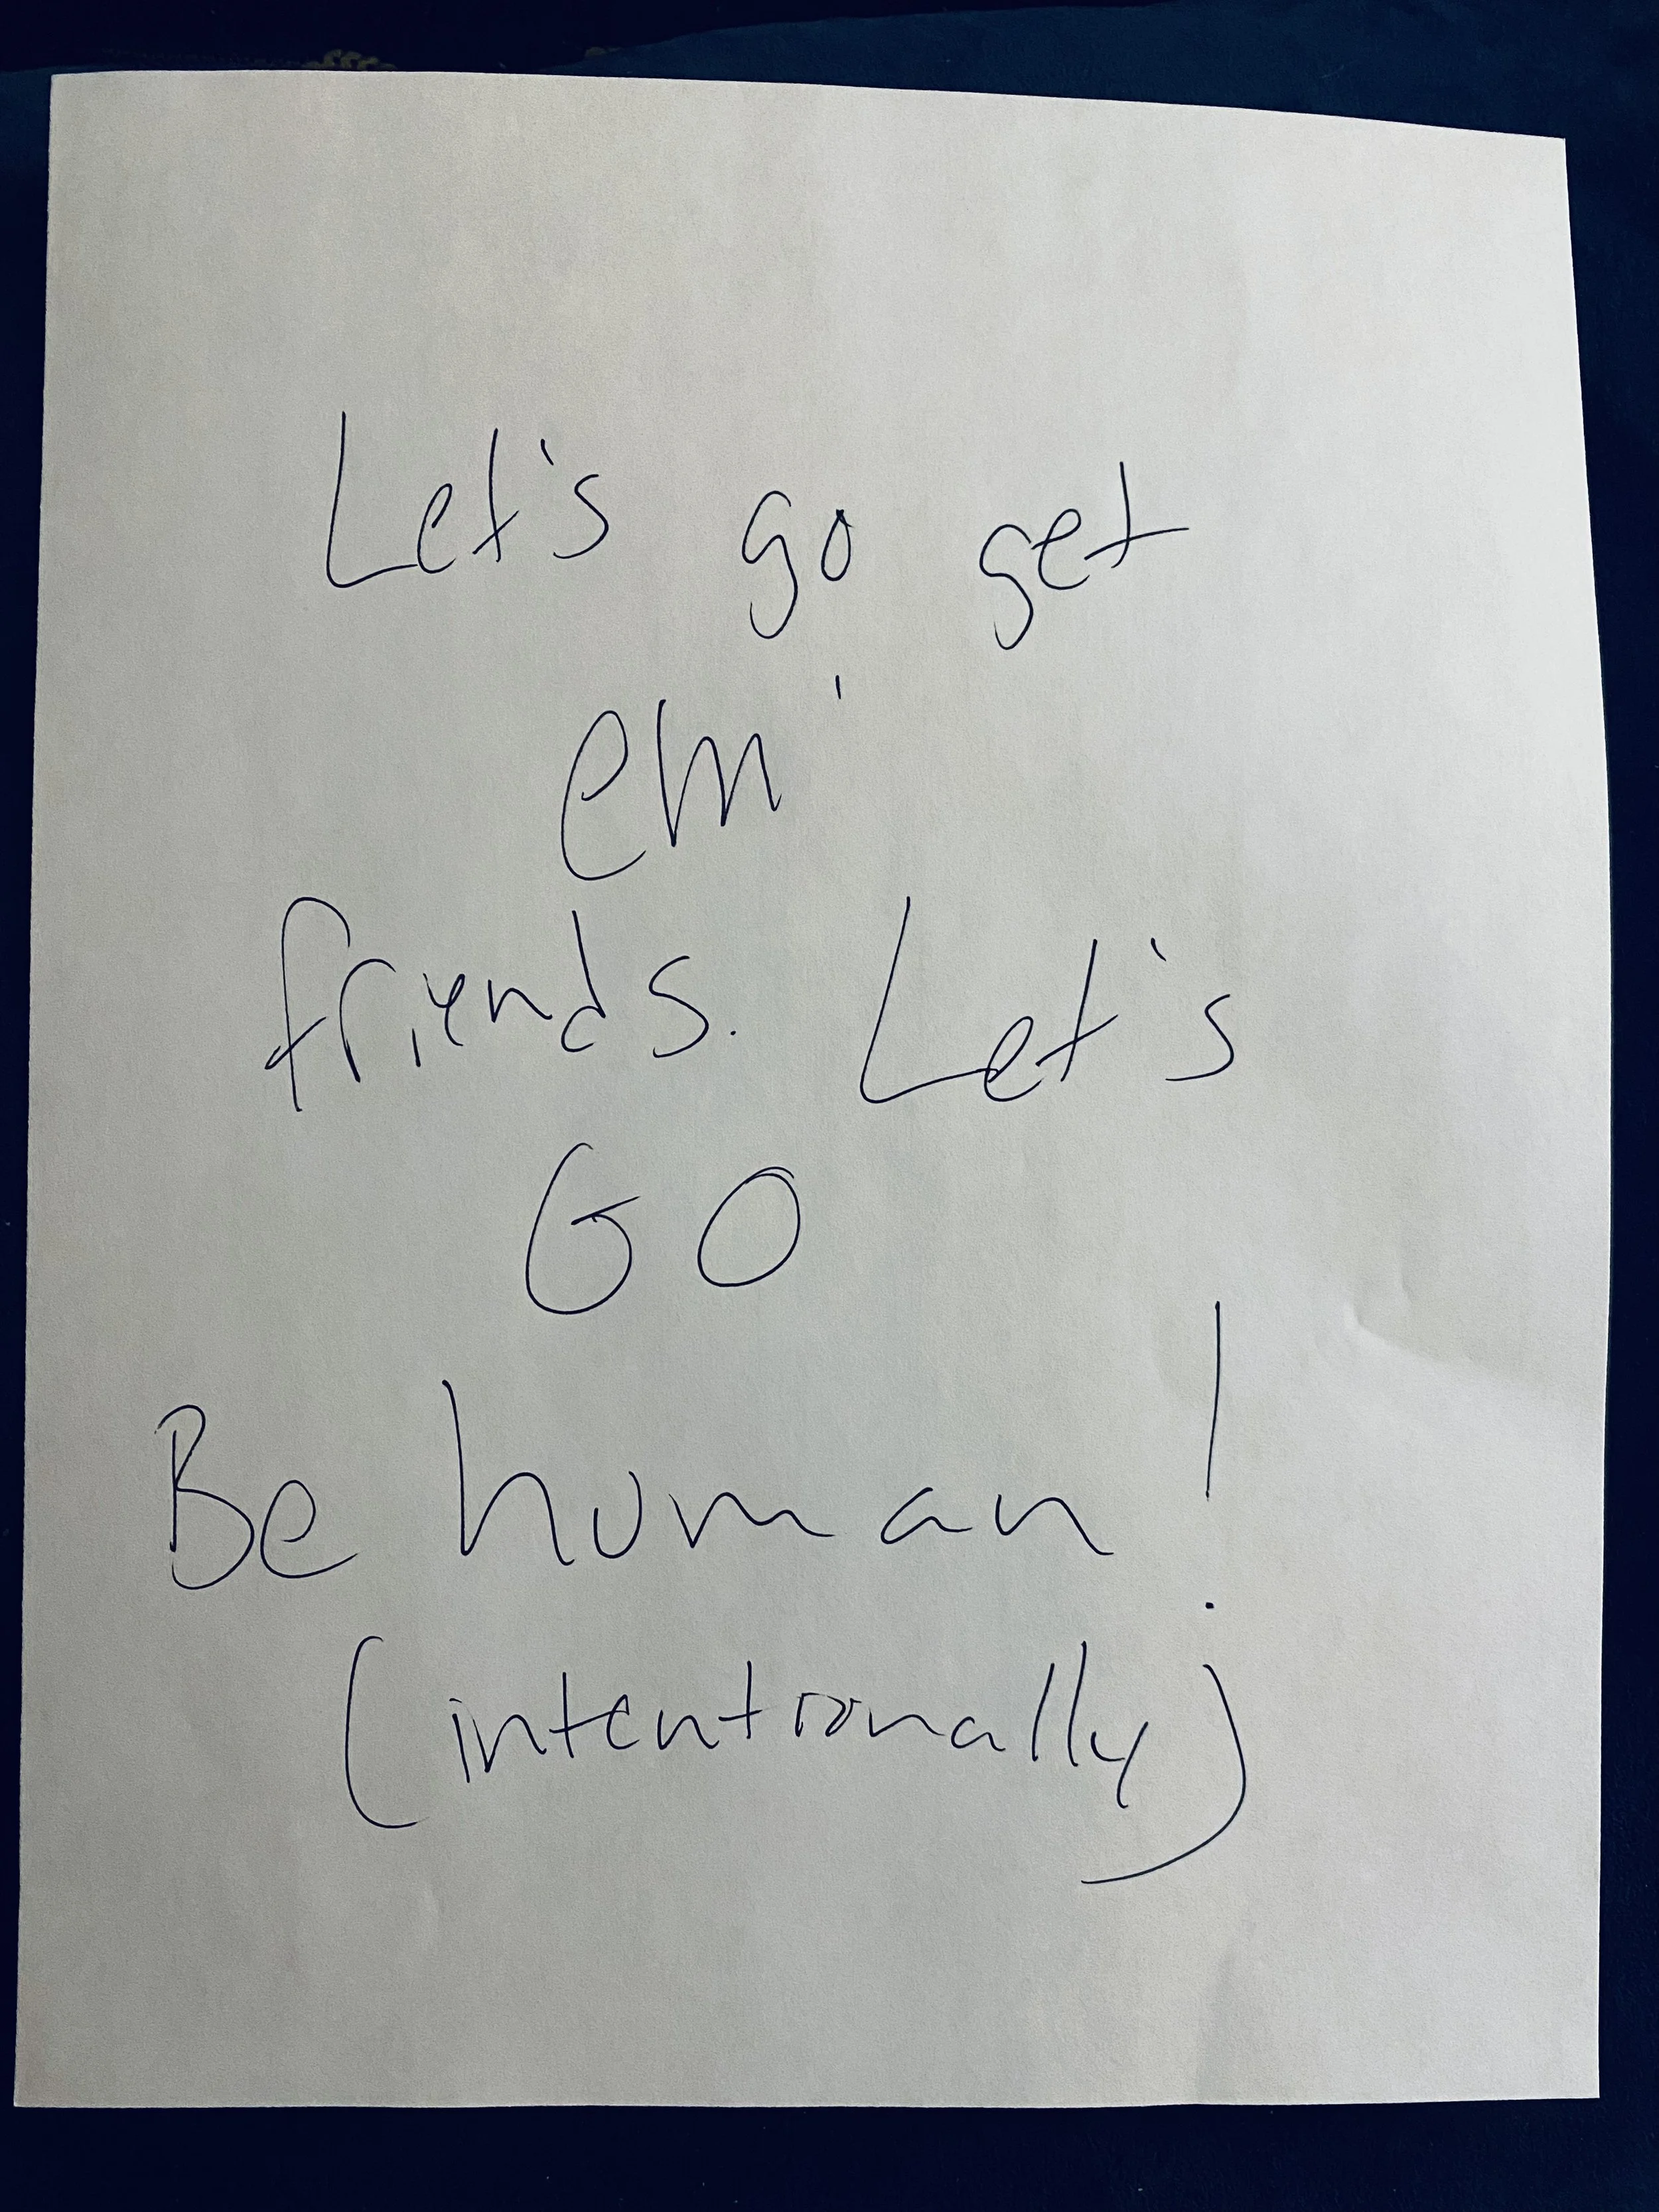 Let's go get
em'
friends. Let's
GO
Be human!
(intentionally)